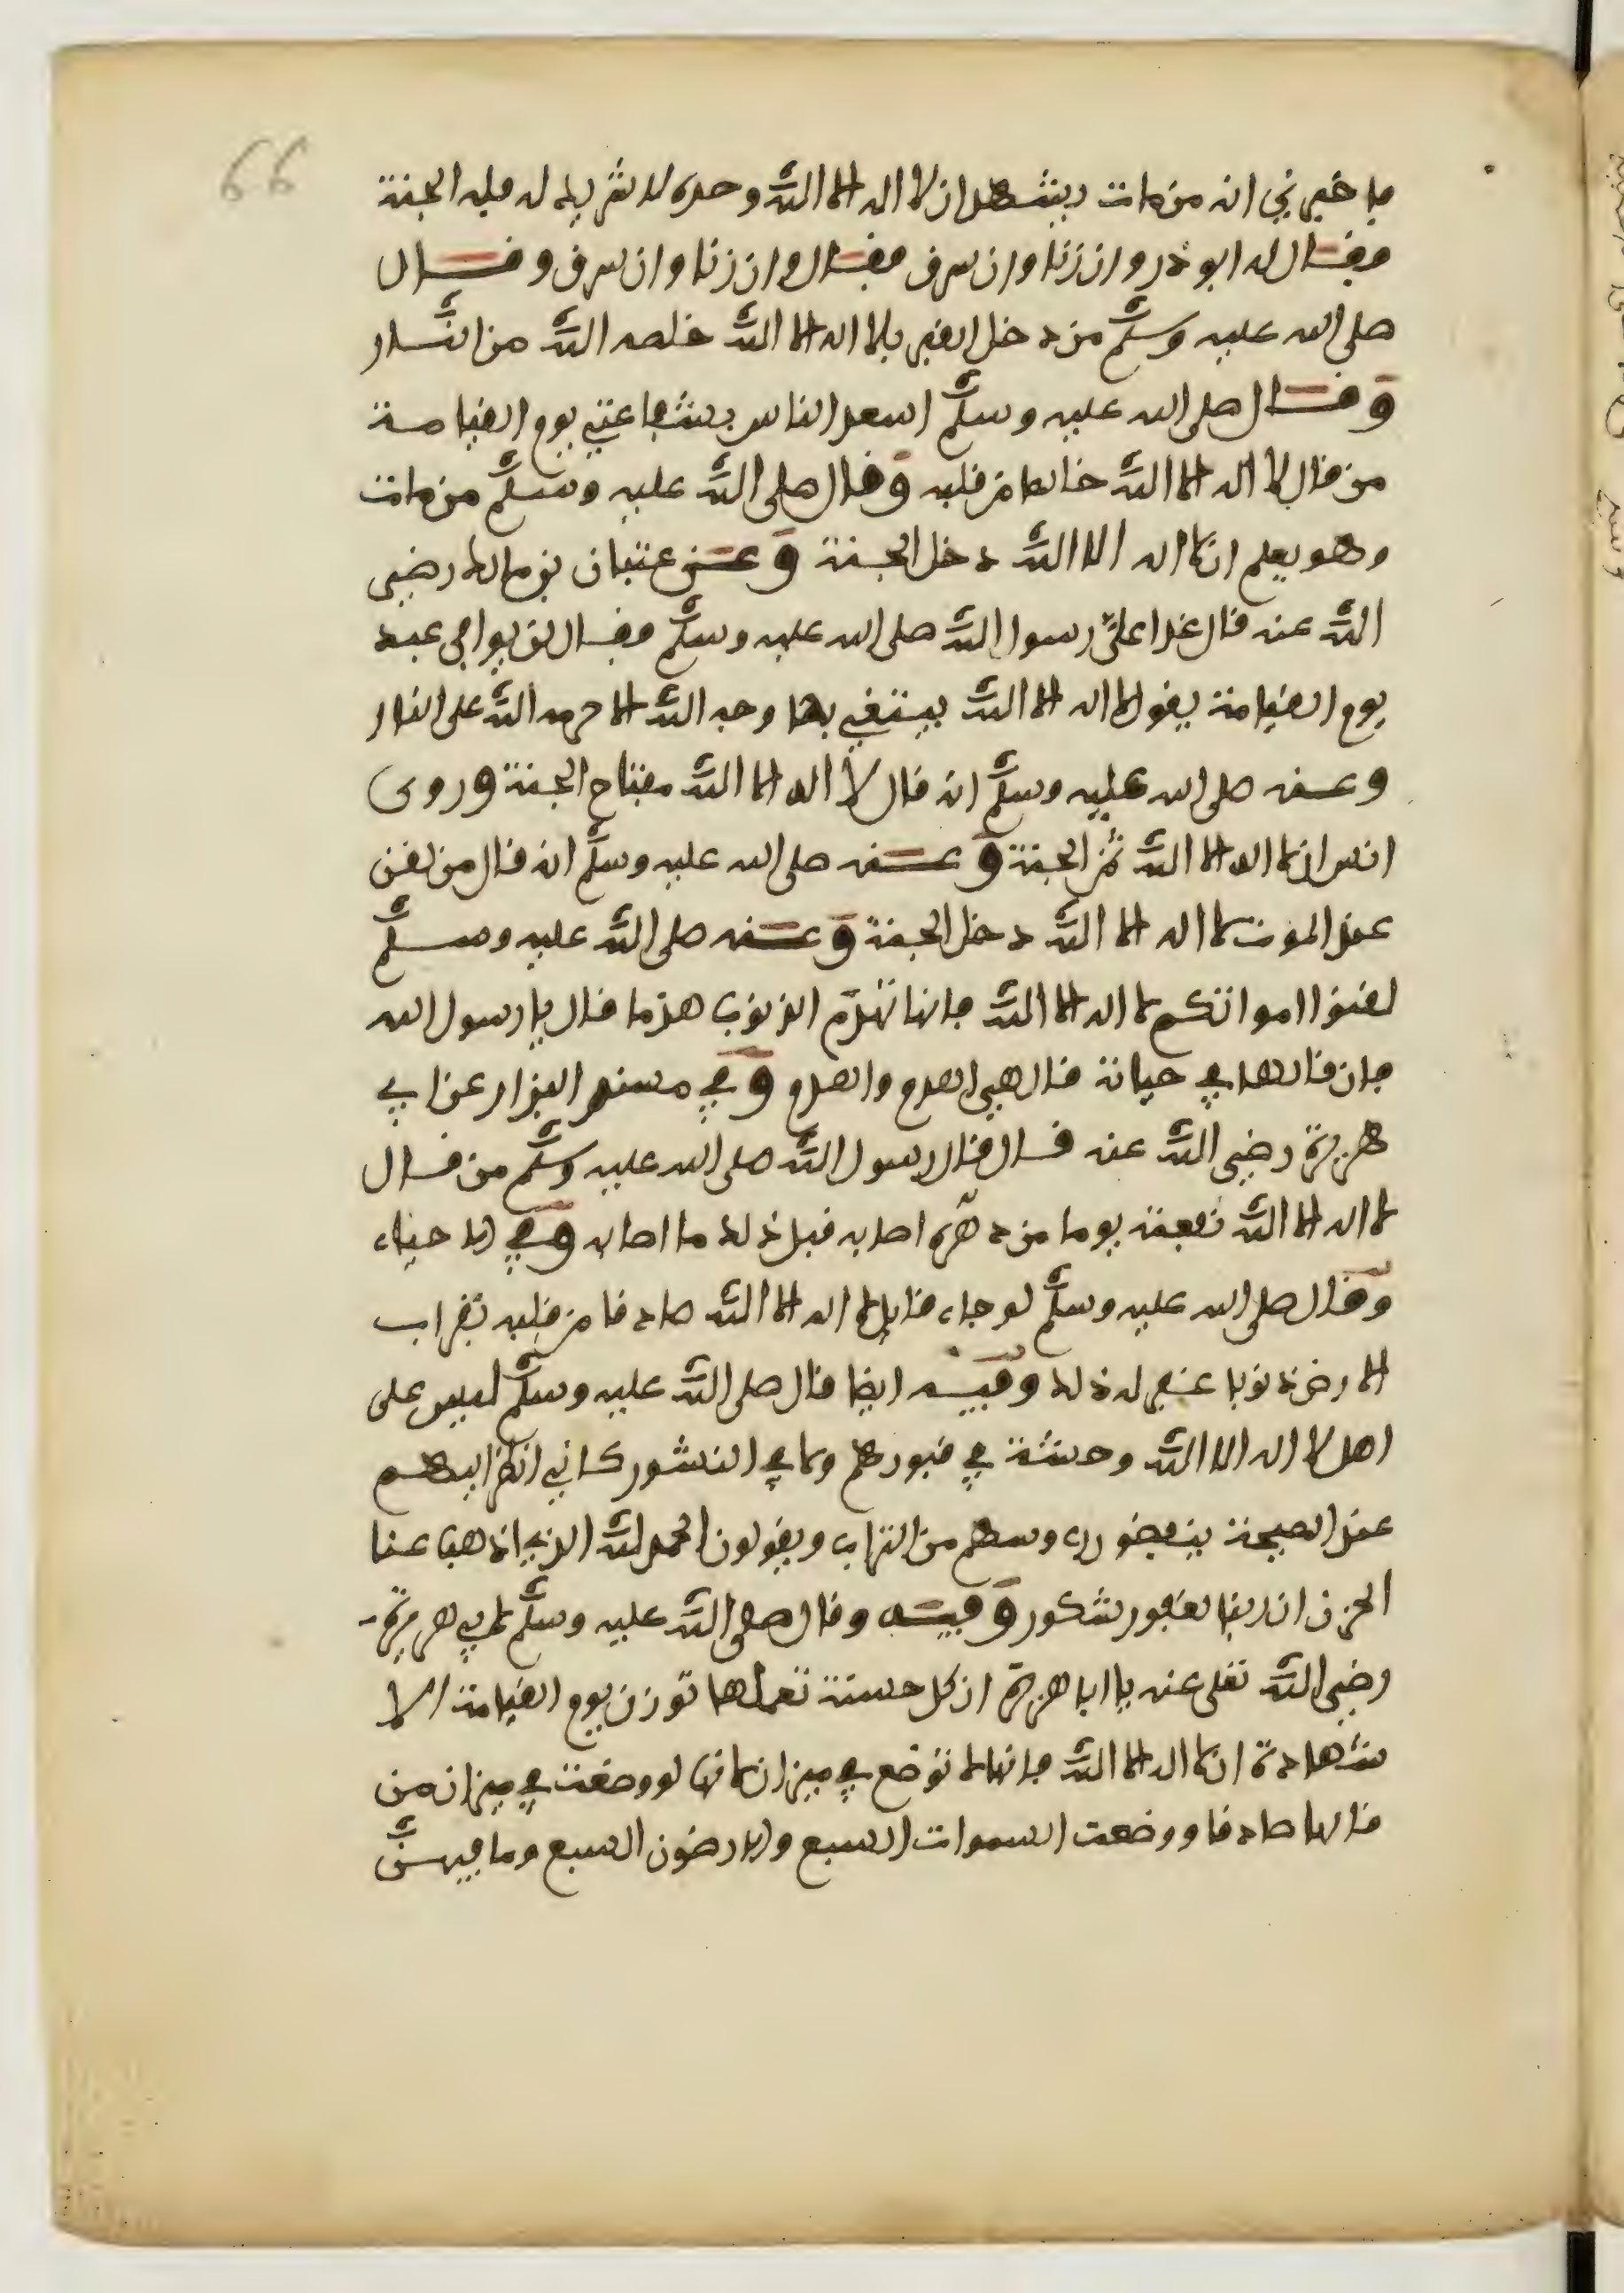 66
فاخبرني انه من مات يشهد ان لا اله الا الله وحده لا شريك له فله الجنة
فقال له ابو ذر وان زنا وان سرق فقال وان زنا وان سرق وقال
صلى الله عليه وسلم من دخل القبر بلا اله الا الله خلصه الله من النار
وقال صلى الله عليه وسلم اسعد الناس بشفاعتي يوم القيامة
من قال لا اله الا الله خالصا من قلبه وقال صلى الله عليه وسلم من مات
وهو يعلم ان لا اله الا الله دخل الجنة وعن عتبان بن مالك رضي
الله عنه قال غدا عليّ رسول الله صلى الله عليه وسلم فقال لن يوافي عبد
يوم القيامة يقول لا اله الا الله يبتغي بها وجه الله الا حرمه الله على النار
وعنه صلى الله عليه وسلم انه قال لا اله الا الله مفتاح الجنة وروى
انس ان لا اله الا الله ثمن الجنة وعنه صلى الله عليه وسلم انه قال من لقن
عند الموت لا اله الا الله دخل الجنة وعنه صلى الله عليه وسلم
لقنوا امواتكم لا اله الا الله فانها تهدم الذنوب هدما قال يا رسول الله
فان قالها في حياته قال هي اهدم واهدم وفي مسند البزار عن ابي
هريرة رضي الله عنه قال قال رسول الله صلى الله عليه وسلم من قال
لا اله الا الله نفعته يوما من دهره اصابه قبل ذلك ما اصابه وفي الاحياء
وقال صلى الله عليه وسلم لو جاء قايل لا اله الا الله صادقا من قلبه بقراب
الارض ذنوبا غفر له ذلك وفيه ايضا قال صلى الله عليه وسلم ليس على
اهل لا اله الا الله وحشة في قبورهم ولا في النشور كاني انظر اليهم
عند الصيحة ينفضون رءوسهم من التراب ويقولون الحمد لله الذي اذهب عنا
الحزن ان ربنا لغفور شكور وفيه وقال صلى الله عليه وسلم لابي هريرة
رضي الله تعلى عنه يا ابا هريرة ان كل حسنة تعملها توزن يوم القيامة الا
شهادة ان لا اله الا الله فانها لا توضع في ميزان لانها لو وضعت في ميزان من
قالها صادقا ووضعت السموات السبع والارضون السبع وما فيهن